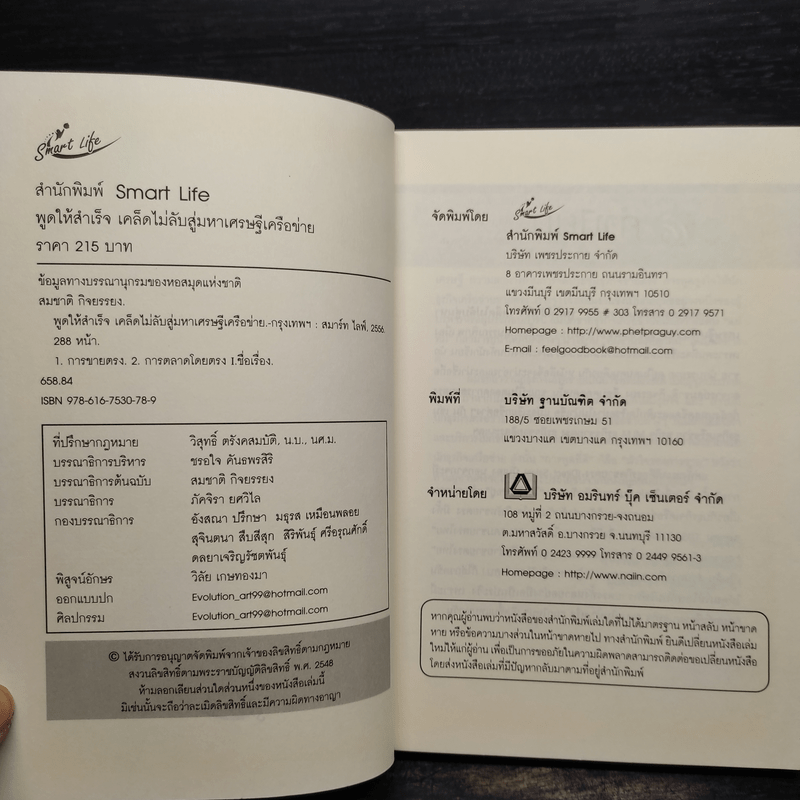 Smart Life
สำนักพิมพ์ Smart Life
พูดให้สำเร็จ เคล็ดไม่ลับสู่มหาเศรษฐีเครือข่าย
ราคา 215 บาท
ข้อมูลทางบรรณานุกรมของหอสมุดแห่งชาติ
สมชาติ กิจยรรยง.
พูดให้สำเร็จ เคล็ดไม่ลับสู่มหาเศรษฐีเครือข่าย.-กรุงเทพฯ : สมาร์ท ไลฟ์, 2556.
288 หน้า.
1. การขายตรง. 2. การตลาดโดยตรง I.ชื่อเรื่อง.
658.84
ISBN 978-616-7530-78-9
ที่ปรึกษากฎหมาย วิสุทธิ์ ตรังคสมบัติ, น.บ., นศ.ม.
บรรณาธิการบริหาร ชรอใจ คันธพรสิริ
บรรณาธิการต้นฉบับ สมชาติ กิจยรรยง
บรรณาธิการ ภัคจิรา ยศวิไล
กองบรรณาธิการ อังสณา ปรึกษา มธุรส เหมือนพลอย
สุจินตนา สืบสีสุก สิริพันธุ์ ศรีอรุณศักดิ์
ดลยาเจริญรัชตพันธุ์
พิสูจน์อักษร วิลัย เกษทองมา
ออกแบบปก Evolution_art99@hotmail.com
ศิลปกรรม Evolution_art99@hotmail.com
© ได้รับการอนุญาตจัดพิมพ์จากเจ้าของลิขสิทธิ์ตามกฎหมาย
สงวนลิขสิทธิ์ตามพระราชบัญญัติลิขสิทธิ์ พ.ศ. 2548
ห้ามลอกเลียนส่วนใดส่วนหนึ่งของหนังสือเล่มนี้
มิเช่นนั้นจะถือว่าละเมิดลิขสิทธิ์และมีความผิดทางอาญา
จัดพิมพ์โดย Smart Life
สำนักพิมพ์ Smart Life
บริษัท เพชรประกาย จำกัด
8 อาคารเพชรประกาย ถนนรามอินทรา
แขวงมีนบุรี เขตมีนบุรี กรุงเทพฯ 10510
โทรศัพท์ 0 2917 9955 # 303 โทรสาร 0 2917 9571
Homepage : http://www.phetpraguy.com
E-mail : feelgoodbook@hotmail.com
พิมพ์ที่ บริษัท ฐานบัณฑิต จำกัด
188/5 ซอยเพชรเกษม 51
แขวงบางแค เขตบางแค กรุงเทพฯ 10160
จำหน่ายโดย บริษัท อมรินทร์ บุ๊ค เซ็นเตอร์ จำกัด
108 หมู่ที่ 2 ถนนบางกรวย-จงถนอม
ต.มหาสวัสดิ์ อ.บางกรวย จ.นนทบุรี 11130
โทรศัพท์ 0 2423 9999 โทรสาร 0 2449 9561-3
Homepage : http://www.naiin.com
หากคุณผู้อ่านพบว่าหนังสือของสำนักพิมพ์เล่มใดที่ไม่ได้มาตรฐาน หน้าสลับ หน้าขาด
หาย หรือข้อความบางส่วนในหน้าขาดหายไป ทางสำนักพิมพ์ ยินดีเปลี่ยนหนังสือเล่ม
ใหม่ให้แก่ผู้อ่าน เพื่อเป็นการขออภัยในความผิดพลาดสามารถติดต่อขอเปลี่ยนหนังสือ
โดยส่งหนังสือเล่มที่มีปัญหากลับมาตามที่อยู่สำนักพิมพ์